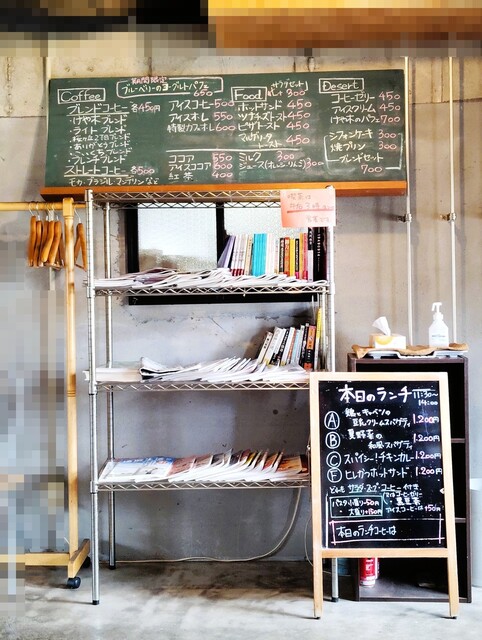 期間限定
ブルーベリーのヨーグルトパフェ
650
Coffee
ブレンドコーヒー 各450円
けやきブレンド
ライトブレンド
ありがとうブレンド
フレンチブレンド
ストレートコーヒー 各500
モカ・ブラジル・マンデリンなど
アイスコーヒー 500
アイスオ・レ 550
特製カフェオレ 600
ココア 550
アイスココア 600
紅茶 400
Food
サラダセット
300
ホットサンド 450
ツナチーズトースト 450
ピザトースト 450
マルゲリータ
トースト 450
ミルク 300
ジュース(オレンジ・りんご) 300
Desert
コーヒーゼリー 450
アイスクリーム 450
けやきのパフェ 700
シフォンケーキ 300
焼プリン 300
ブレンドセット
700
本日のランチ 11:30~
14:00
A 鶏とキャベツの
豆乳クリームスパゲティ 1,200円
B 夏野菜の
和風スパゲティ 1,200円
C スパイシーチキンカレー 1,200円
F ヒレかつホットサンド 1,200円
どれも サラダ・スープ・コーヒー付き
パスタ小盛り-50円
大盛り+150円
又はコーヒーゼリー
アイスコーヒーは+50円
本日のランチコーヒーは